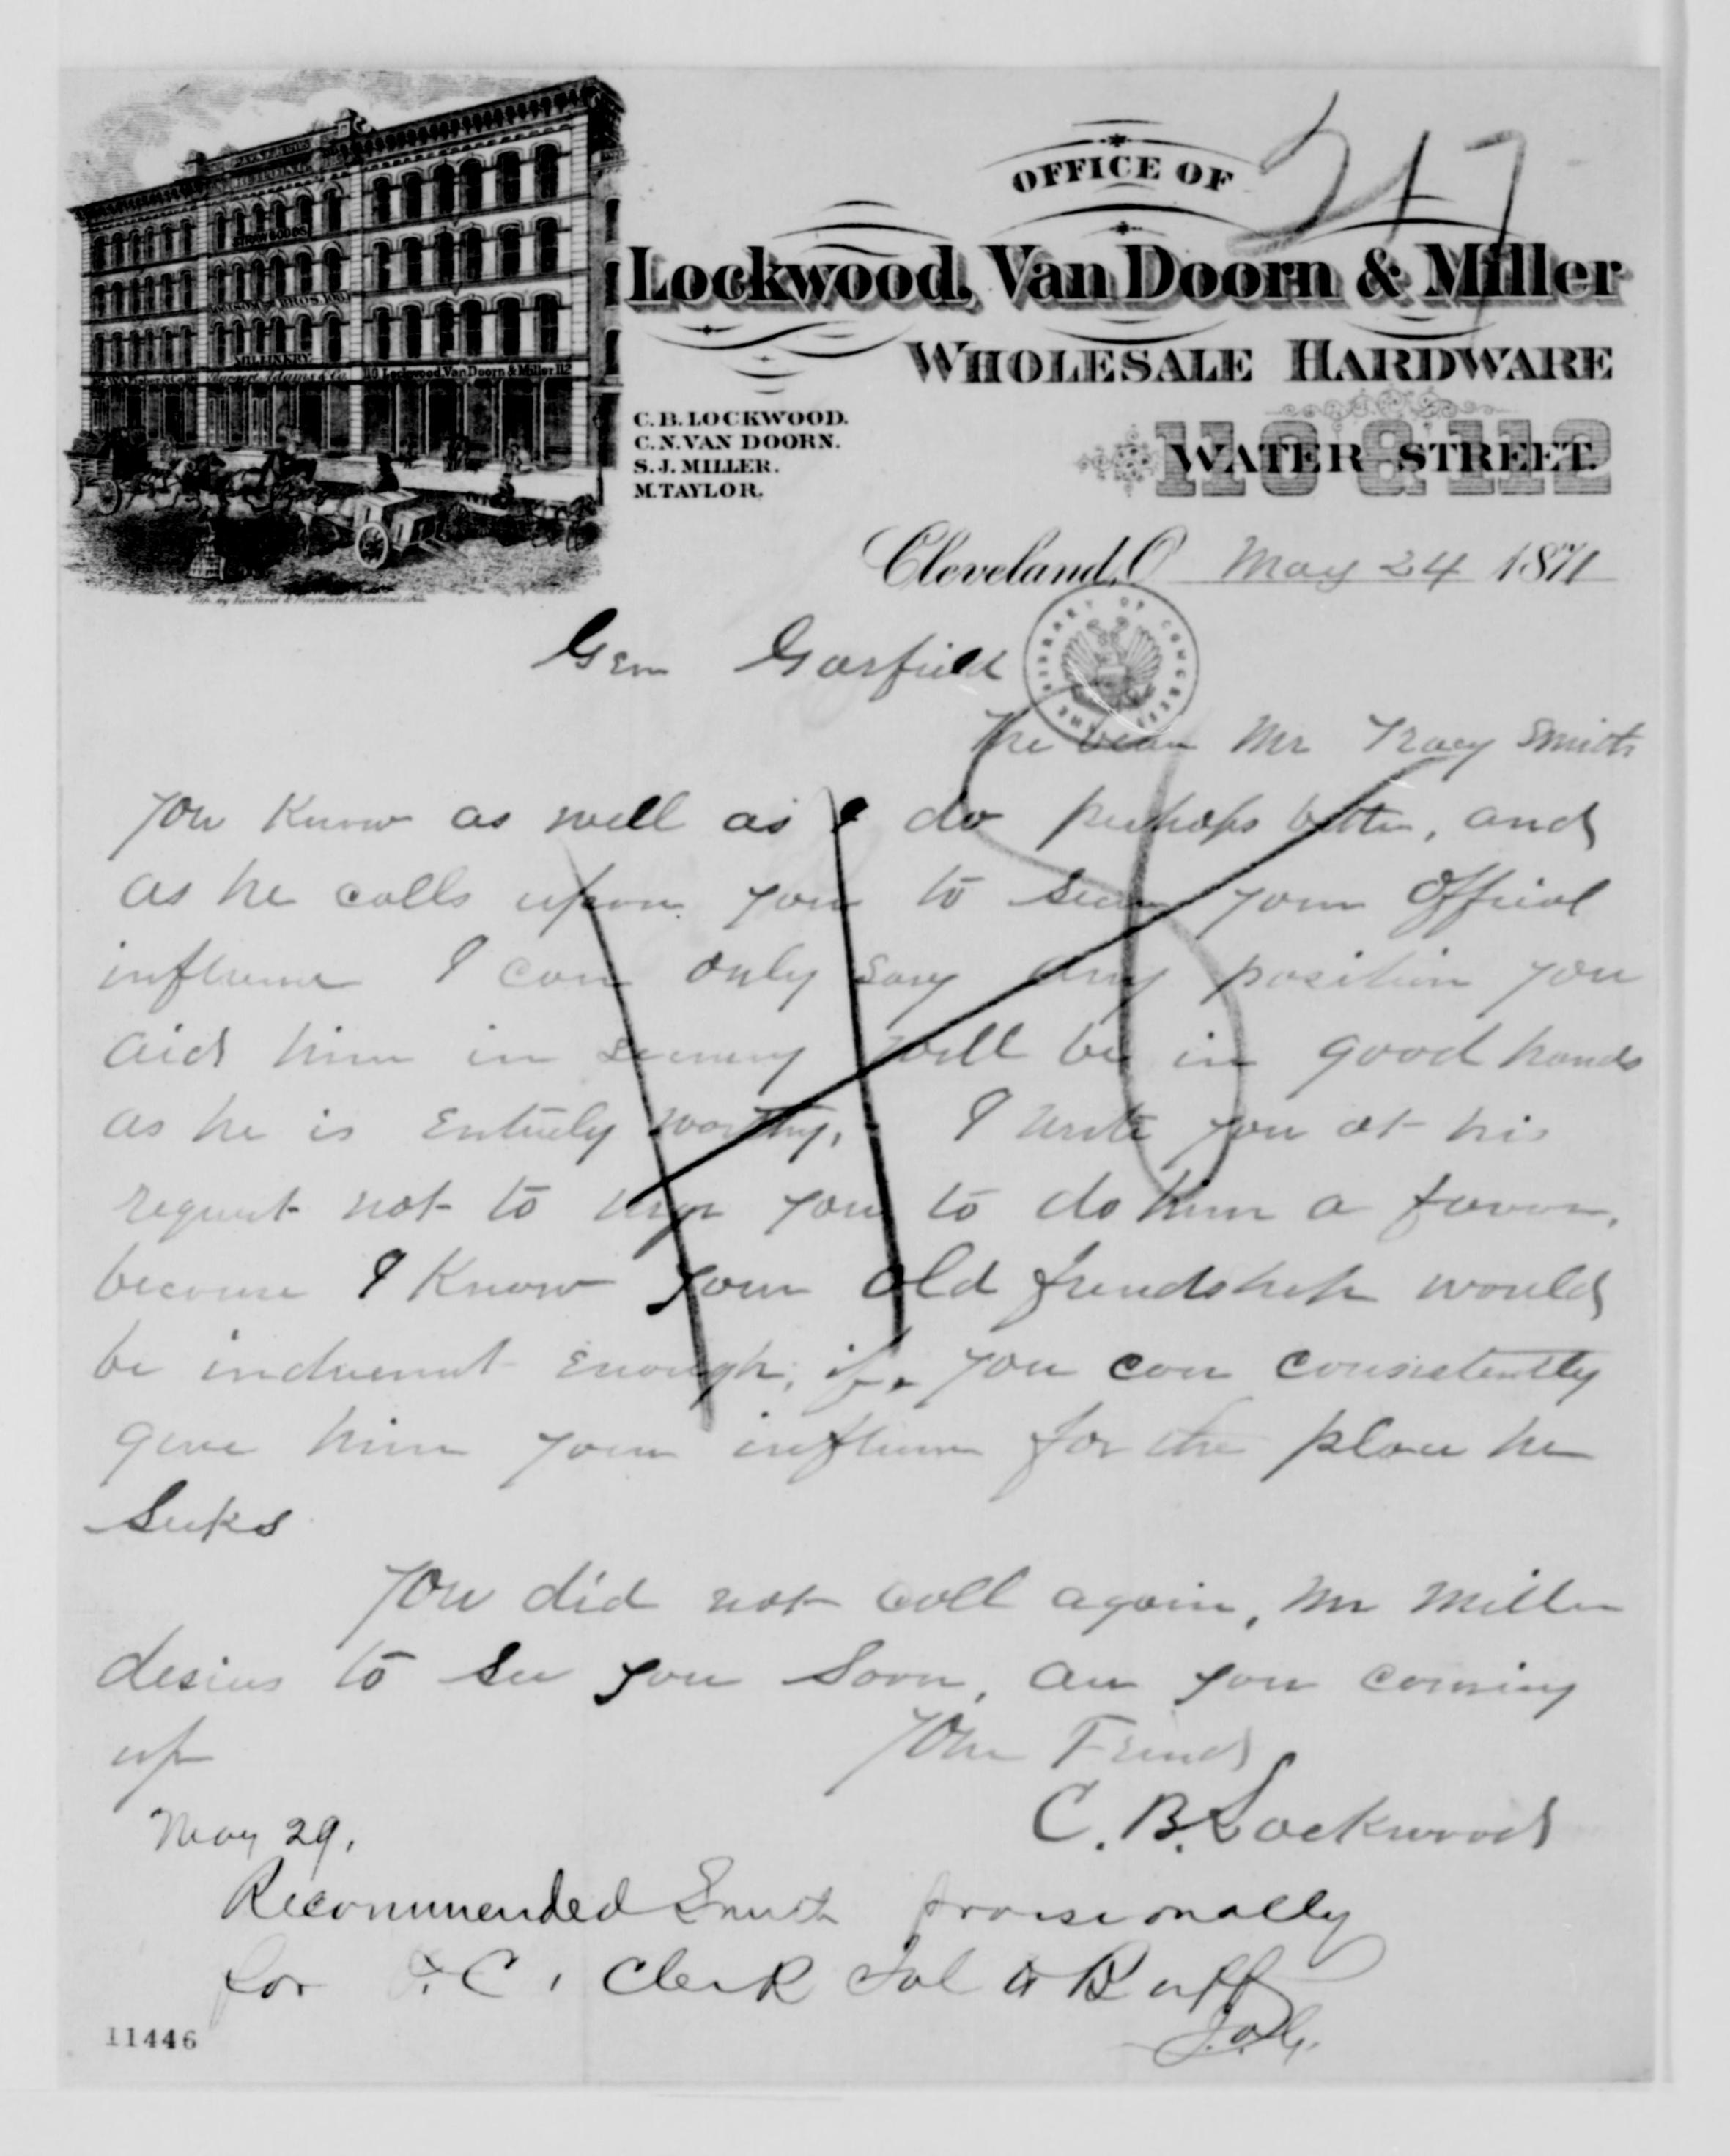 217
OFFICE OF
Lockwood, Van Doorn & Miller
WHOLESALE HARDWARE
110 & 112
WATER STREET.
C. B. LOCKWOOD.
C. N. VAN DOORN.
S. J. MILLER.
M. TAYLOR.
MILLINERY
110 Lockwood, Van Doorn & Miller 112
Cleveland, O May 24 1871
Gen Garfield
THE LIBRARY OF CONGRESS
The Mr Tracy Smith
you know as well as I do perhaps better, and
as he calls upon you to secure your official
influence I can only say any position you
aid him in securing will be in good hands
as he is entirely worthy. I write you at his
request not to urge you to do him a favor,
because I know your old friendship would
be inducement enough, if you can consistently
give him your influence for the place he
seeks
You did not call again, Mr Miller
desires to see you soon, are you coming
up
Your Friend
C. B. Lockwood
May 29.
Recommended Smith provisionally
for P.C. Clerk Tol & Buff
J.A.G.
11446